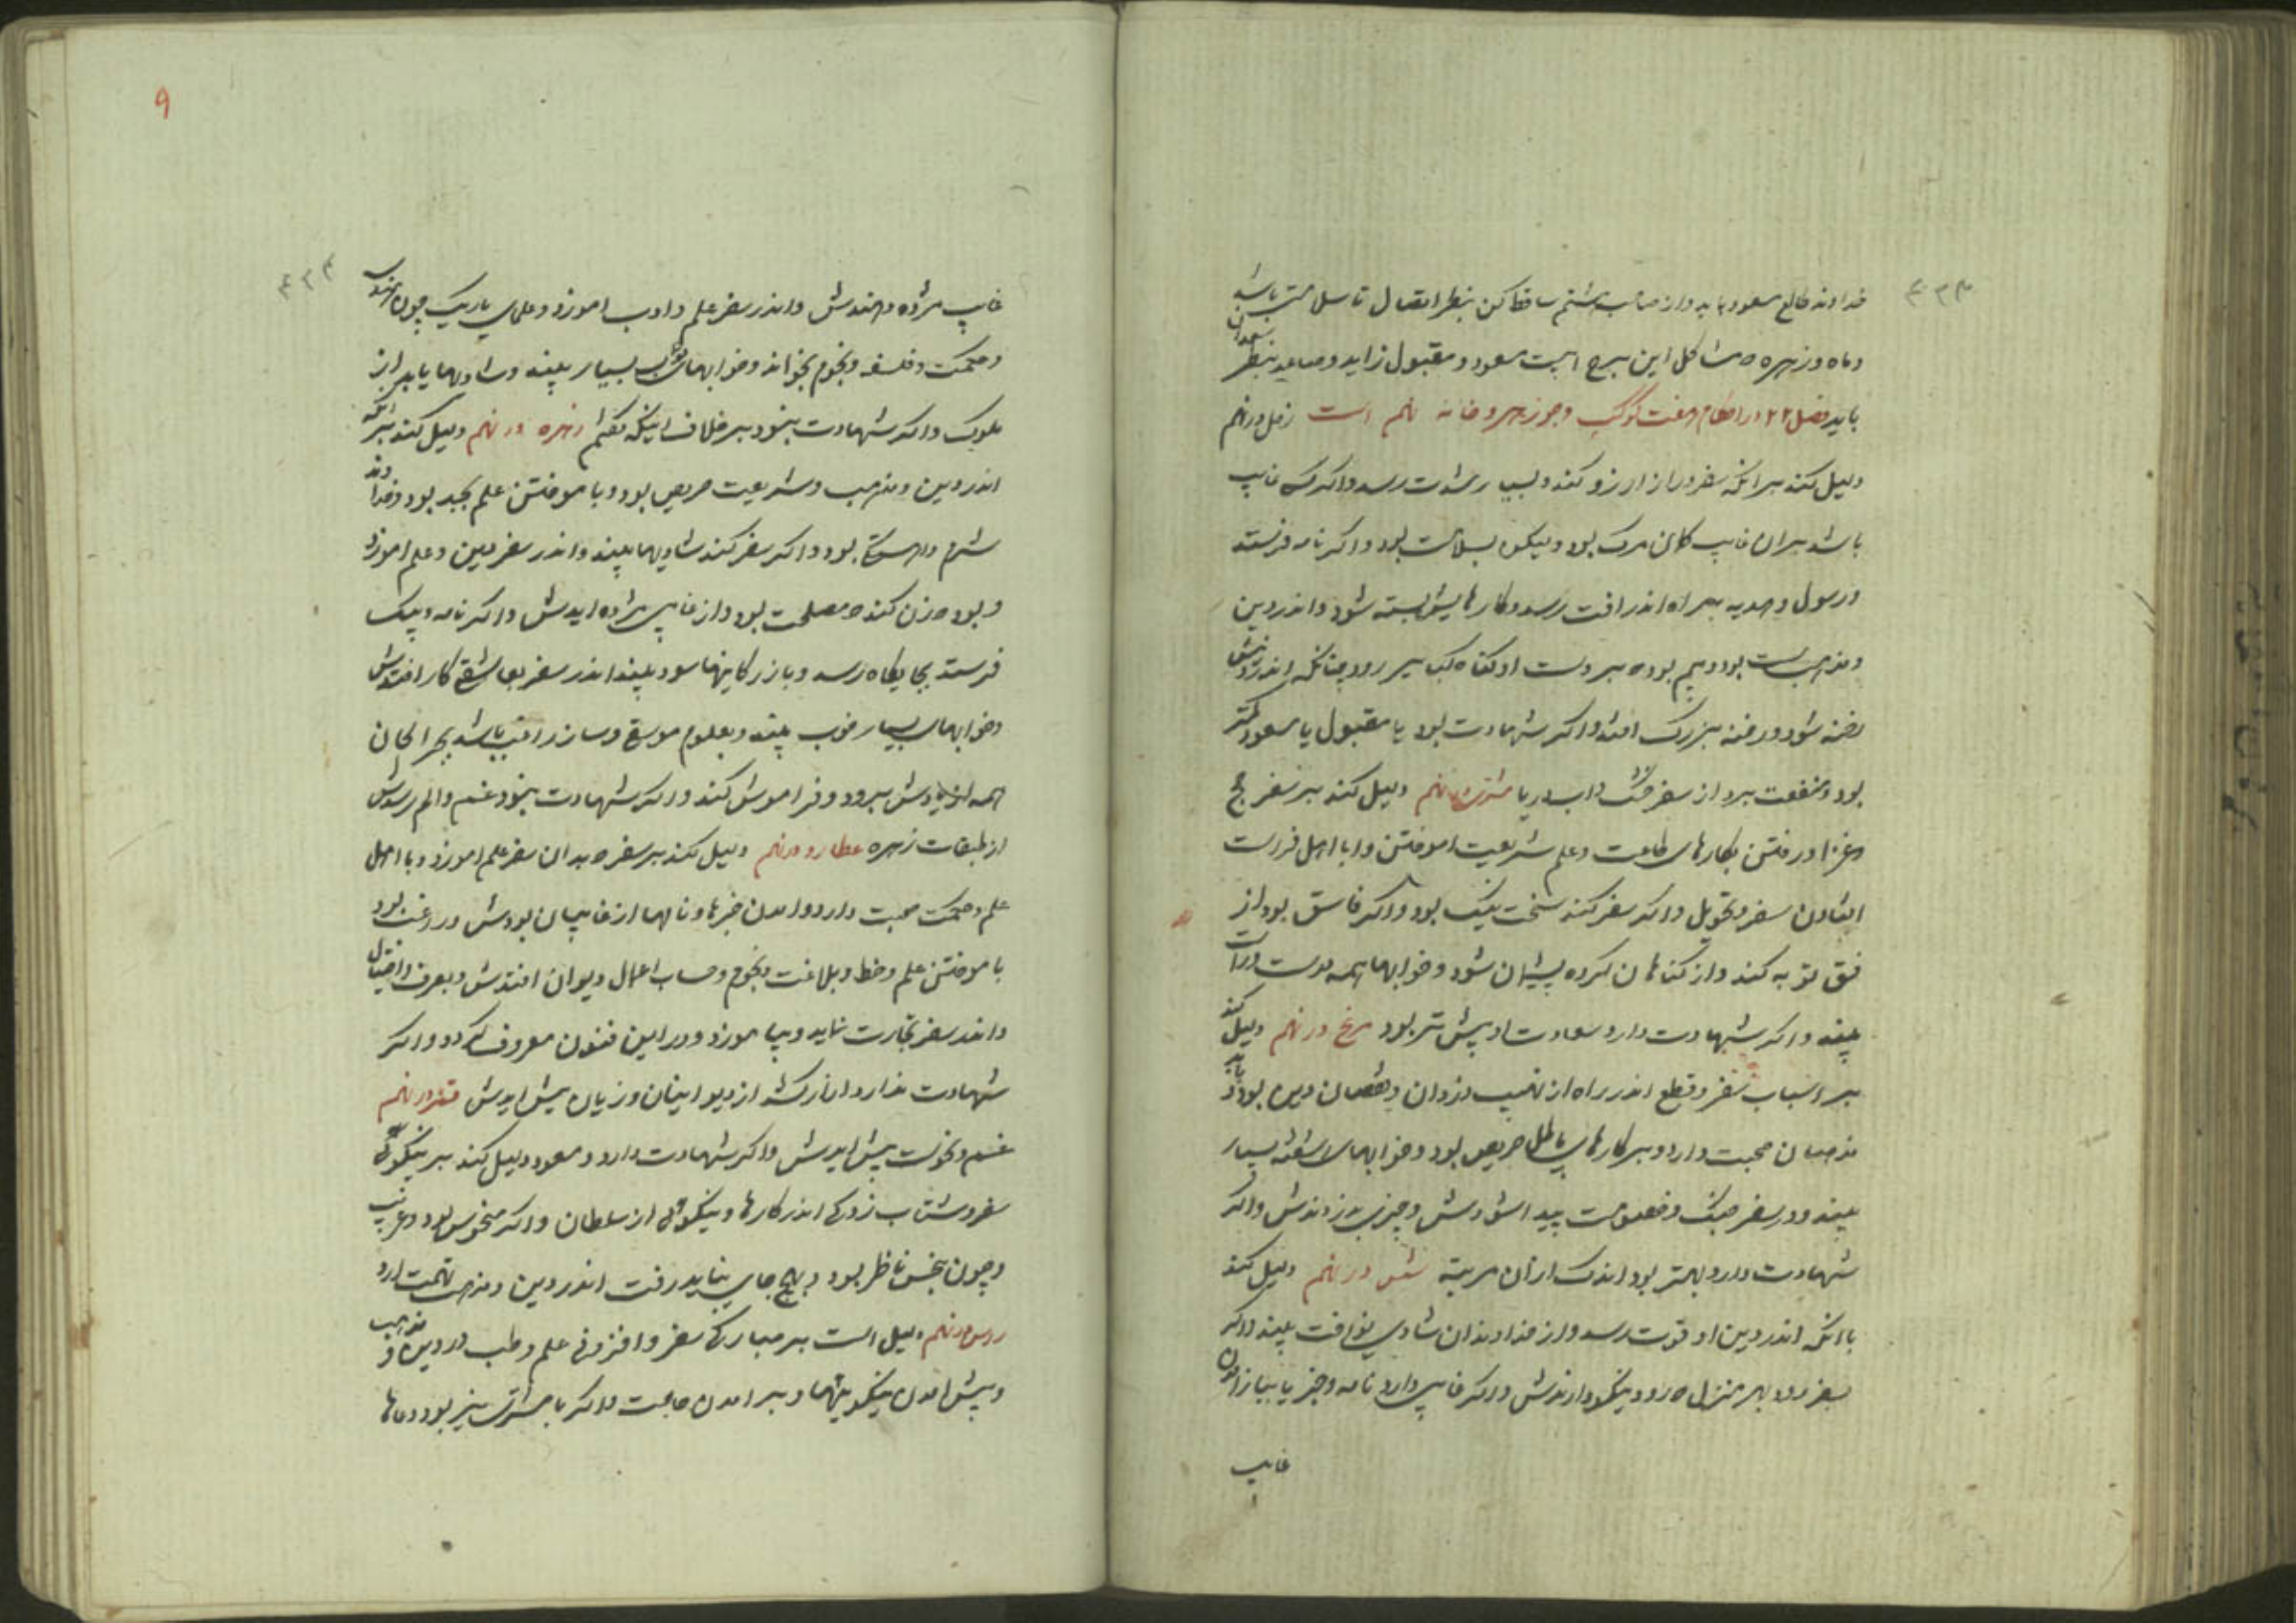 ۴۳۳
خداوند طالع مسعود باید و از صاحب هشتم ساقط کن بنظر اتصال تا سلامت باشد
و ماه و زهره مشاکل این برج است مسعود و مقبول زاید و صاعد بنظر سعدان
باید فصل ۲۲ در احکام هفت کوکب و جوزهر و خانه نهم است زحل در نهم
دلیل کند بر انکه سفر دراز ارزو کند و بسیار شدت رسد و اگر کسی غایب
باشد بران غایب کمان مرک بود ولیکن بسلامت بود و اکر نامه فرستد
و رسول و هدیه براه اندر افت رسد و کارهایش بسته شود و اندر دین
و مذهب سست بود و بیم بود که بر دست او کناه کبیر رود چنانکه اندر دینش
رخنه شود و رخنه بزرک افتد و اکر شهادت بود یا مقبول یا مسعود کمتر
بود و منفعت برد از سفر خشک و اب دریا مشتری در نهم دلیل کند بر سفر حج
و غزا و رفتن بکارهای طاعت و علم شریعت اموختن و با اهل قرات
افتادن سفر و تحویل و اکر سفر کند سخت نیک بود و اکر فاسق بود از
فسق توبه کند و از کناهان کرده پشیمان شود و خوابها همه درست و راست
بیند و اکر شهادت دارد سعادت او بیش تر بود مریخ در نهم دلیل کند
بر اسباب سفر و قطع اندر راه از نهیب دزدان و خصمان دین بود و با بد
مذهبان صحبت دارد و بر کارهای باطل حریص بود و خوابهای اشفته بسیار
بیند و در سفر جنک و خصومت پیدا شودش و چیزی بدزدندش و اکر
شهادت دارد بهتر بود اندک از ان مرتبه شمس در نهم دلیل کند
با انکه اندر دین او قوت رسد و از خداوندان شادی یافت بیند و اکر
بسفر رود بهر منزل که رود نیکو دارندش و اکر غایبی دارد نامه و خبر یابد از امدن
غایب
۹
۴۳۴
غایب مژده دهندش و اندر سفر علم و ادب اموزد و علمهای باریک چون هندسی
و حکمت و فلسفه و نجوم بخواند و خوابهای خوب بسیار بیند و شادیها یابد از
ملوک و اکر شهادت بنود بر خلاف اینکه کفتیم زهره در نهم دلیل کند بر انکه
اندر دین و مذهب و شریعت حریص بود و باموختن علم بجد بود و خداوند
شرم و اهستکی بود و اکر سفر کند شادیها بیند و اندر سفر دین و علم اموزد
و بود که زن کند که مصلحت بود و از غایب مژده ایدش و اکر نامه و پیک
فرستد بجایکاه رسد و بازرکانیها سود بیند اندر سفر بعاشقی کار افتدش
و خوابهای بسیار خوب بیند و بعلوم موسیقی و ساز راغب باشد
همه از یادش برود و فراموش کند و اکر شهادت بنود غم و الم رسدش
از طبقات زهره عطارد در نهم دلیل کند بر سفر که بدان سفر علم اموزد و با اهل
علم و حکمت صحبت دارد و امدن خبرها و نامها از غایبان بودش و راغب بود
باموختن علم و خط و بلاغت و نجوم و حساب اعمال دیوان افتدش و بصرف و احتیال
و اندر سفر تجارت نماید و بیاموزد و در این فنون معروف کردد و اکر
شهادت ندارد از دیوانیان و زیان پیش ایدش قمر در نهم
غم و نحوست پیش ایدش و اکر شهادت دارد و مسعود دلیل کند بر نیکوئی
سفر و شتاب زدکی اندر کارها و نیکوئی از سلطان و اکر منحوس بود
و چون بنحس ناظر بود و بهیچ جای نباید رفت اندر دین و مذهب تهمت ارد
راس در نهم دلیل است بر مبارکی سفر و افزونی علم و طب در دین و مذهب
و پیش امدن نیکوییها و بر امدن حاجت و اکر با مشتری نیز بود دعاها